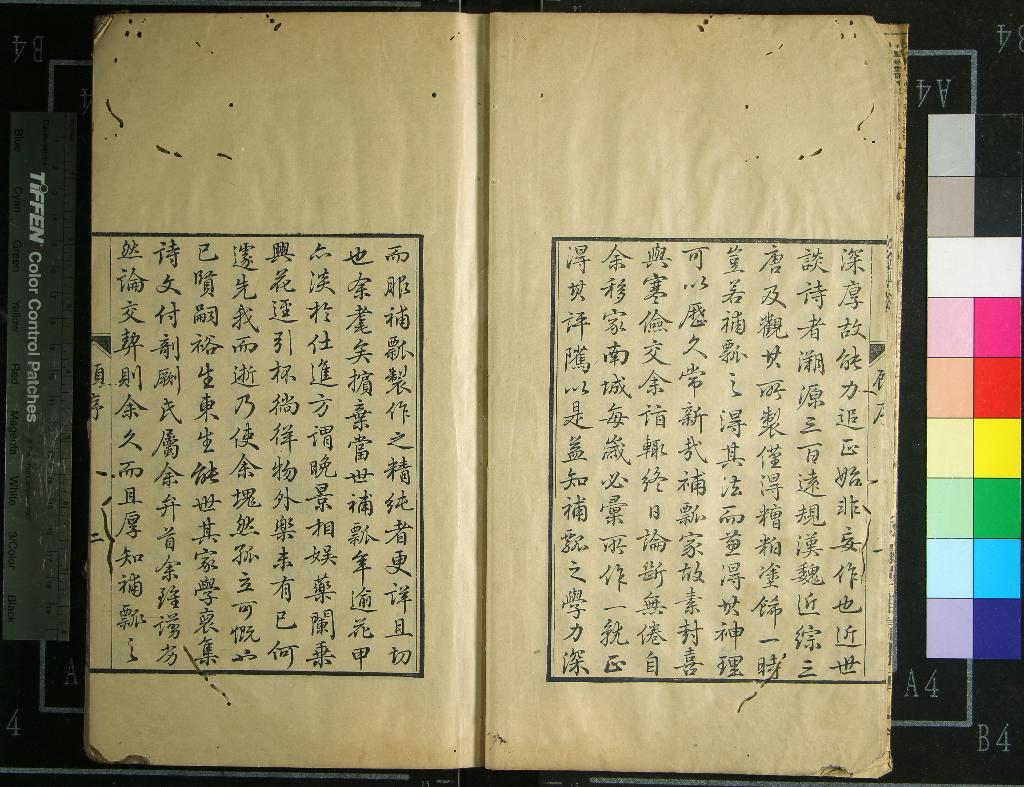 深厚故能力追正始非妄作也近世
談詩者溯源三百遠規漢魏近綜三
唐及觀其所製僅得糟粕塗飾一時
豈若補瓢之得其法而兼得其神理
可以歷久常新哉補瓢家故素封喜
興寒儉交余詣輒終日論斷無倦自
余移家南城每歲必彙所作一就正
得其評騭以是益知補瓢之學力深
而服補瓢製作之精純者更詳且切
也余耄矣擯棄當世補瓢年逾花甲
亦淡於仕進方謂晚景相娛藥闌乘
興花逕引杯徜徉物外樂未有已何
遽先我而逝乃使余塊然孤立可慨也
已賢嗣裕生東生能世其家學裒集
詩文付剞劂氏屬余弁首余雖謭劣
然論交契則余久而且厚知補瓢之
序
二
TIFFEN Color Control Patches
Blue
Cyan
Green
Yellow
Red
Magenta
White
3/Color
Black
A4
B4
A4
B4
A
4